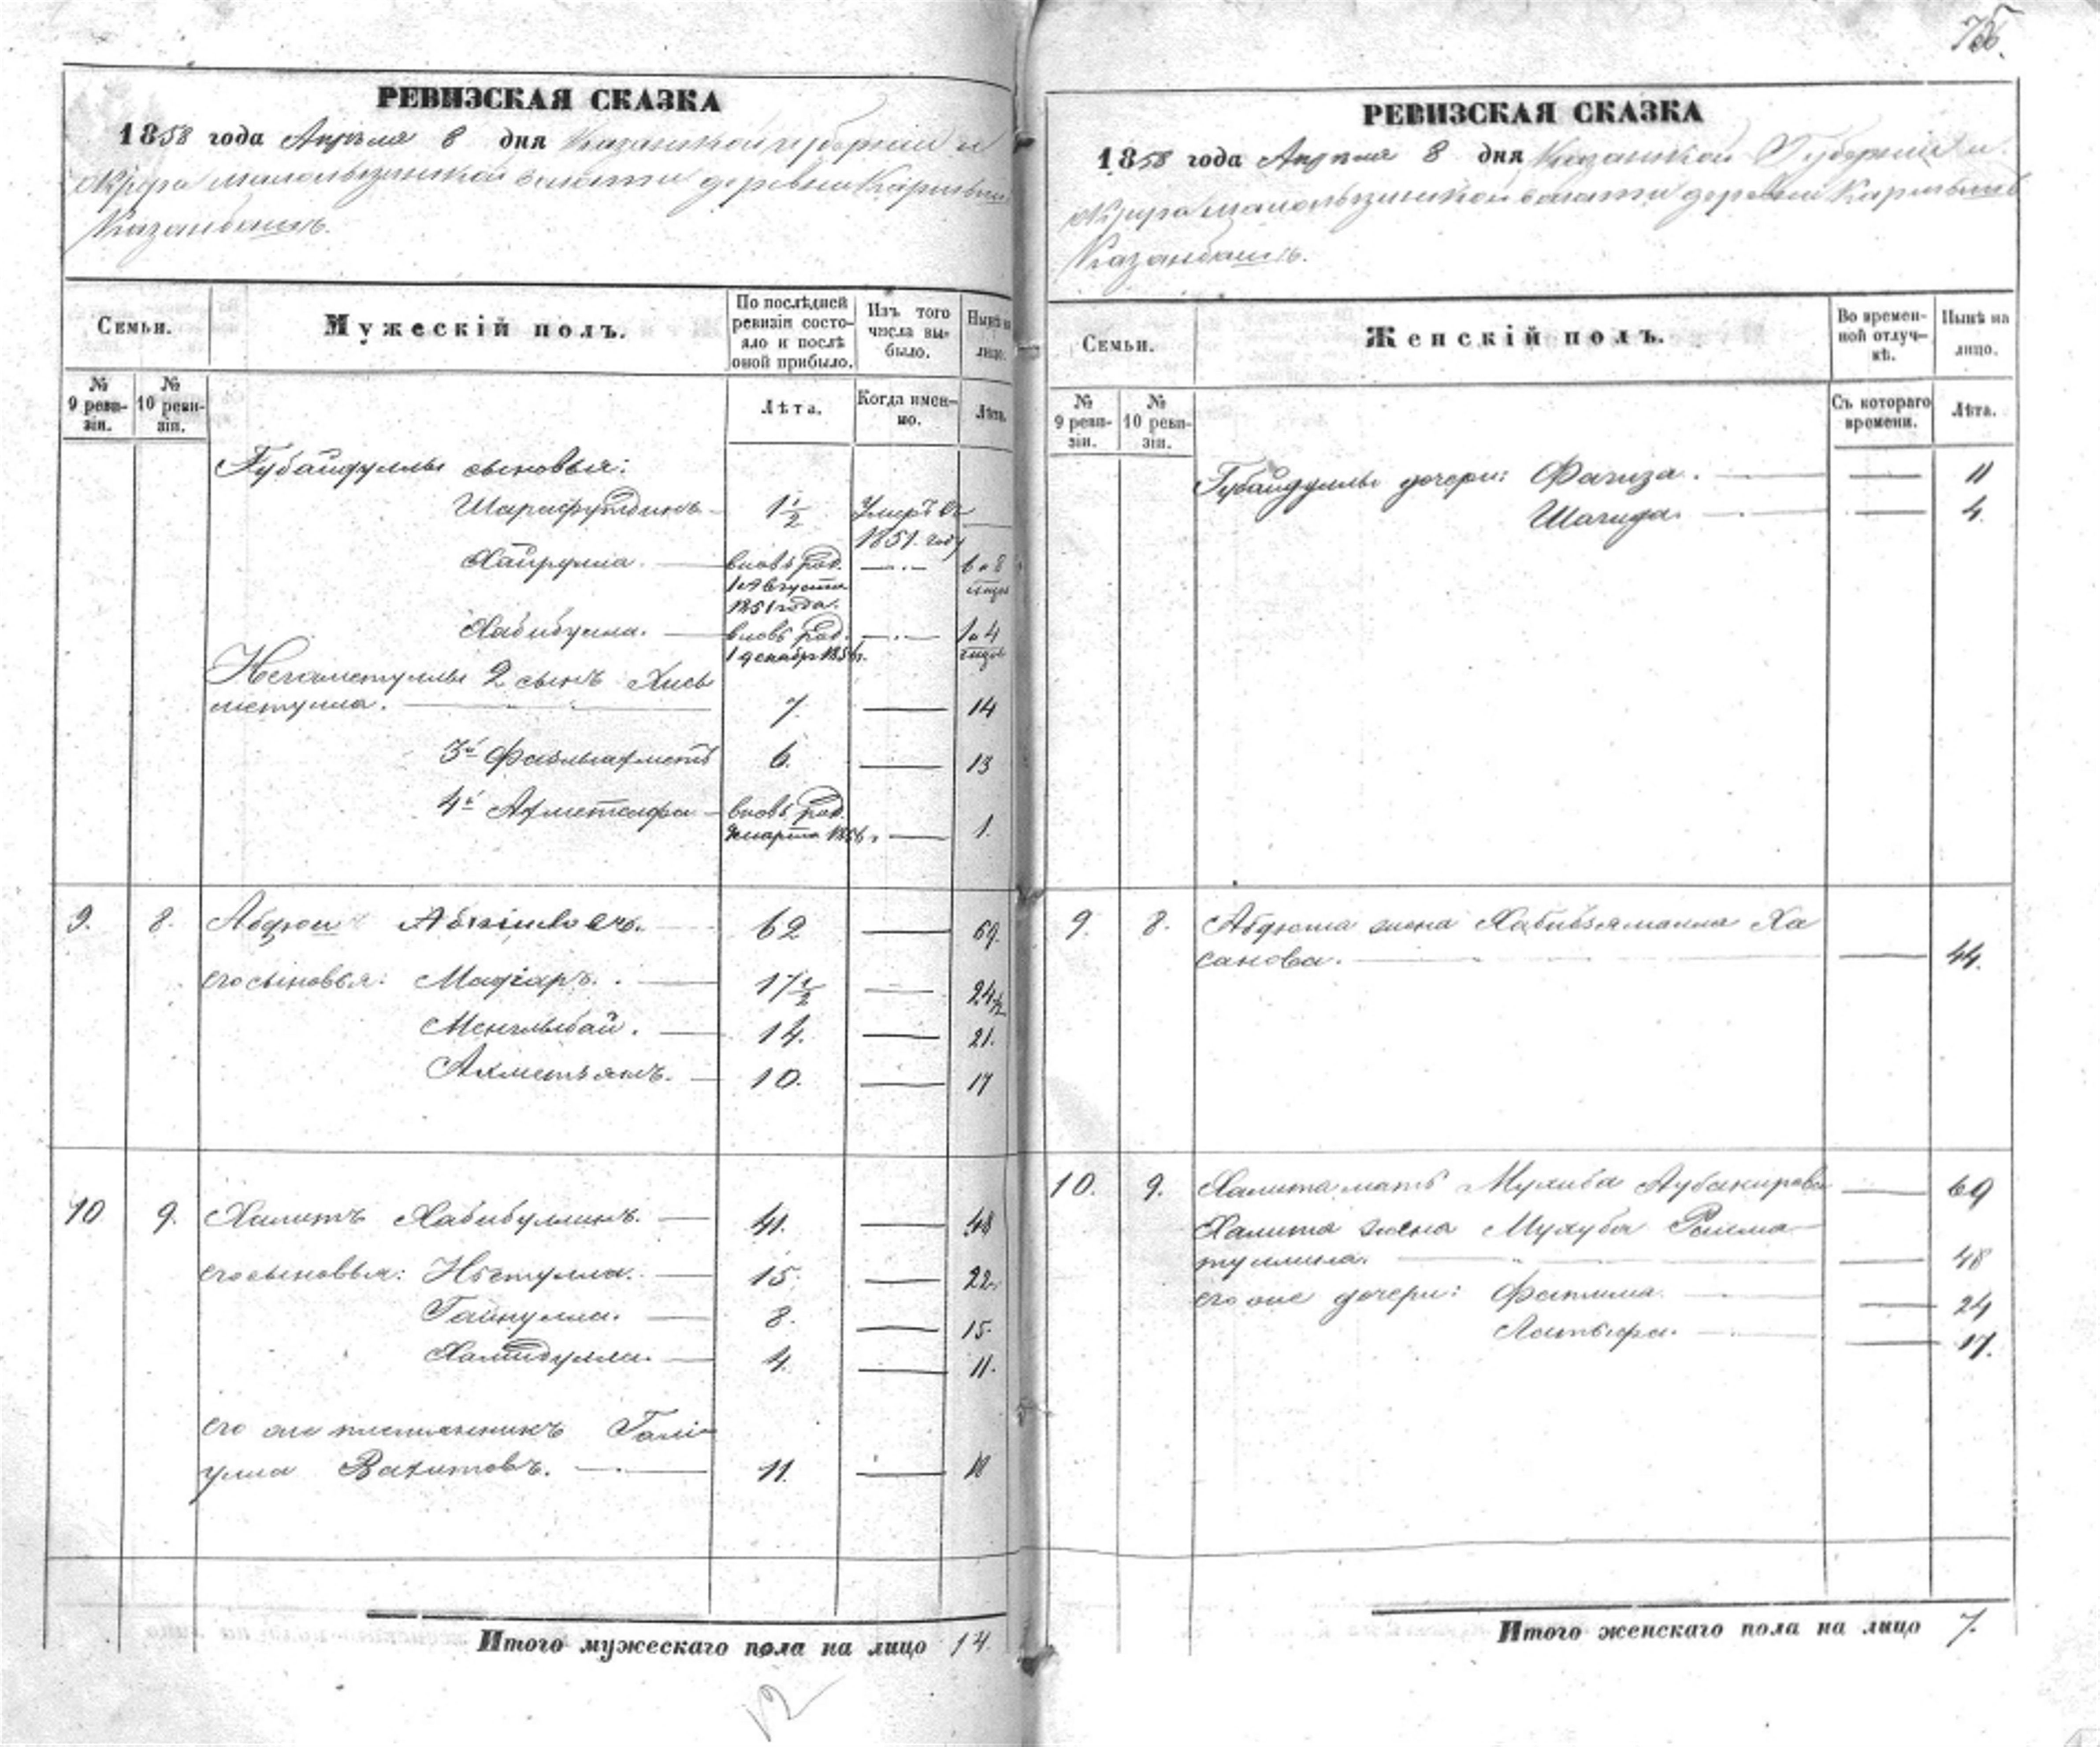 75
РЕВИЗСКАЯ СКАЗКА
1858 года Апреля 8 дня Казанской губернии и
округа малоатынской волости деревни
Казанбашъ.
Семьи.
Мужескій полъ.
По послѣдней ревизіи состояло и послѣ оной прибыло.
Изъ того числа выбыло.
Нынѣ на лицо.
№ 9 ревизіи.
№ 10 ревизіи.
Лѣта.
Когда именно.
Лѣта.
Губайдуллы сыновья:
Шарафутдинъ 1 1/2 Умеръ въ 1851 году
Хайрулла вновь род. 1 Августа 1851 года. 6 и 8 мѣсяц
Хабибулла. вновь род. 1 декабр 1856г. 1 и 4 мѣсяц
Негаметуллы 2 сынъ Хисметулла. 7. 14
3й 6. 13
4й Ахметсафа вновь род. марта 1856г. 1.
9. 8. 62 69.
его сыновья: Мадіаръ. 17 1/2 24 1/2
Менглыбай. 14. 21.
Ахметьянъ. 10. 17
10 9. Халитъ Хабибуллинъ. 41. 48
его сыновья: 15. 22.
Гайнулла. 8. 15.
Хамидулла. 4. 11.
его же племянникъ Галіулла Вахитовъ. 11. 18
Итого мужескаго пола на лицо 14.
12
РЕВИЗСКАЯ СКАЗКА
1858 года Апреля 8 дня Казанской Губерніи и
округа волости деревни
Казанбашъ.
Семьи.
Женскій полъ.
Во временной отлучкѣ.
Нынѣ на лицо.
№ 9 ревизіи.
№ 10 ревизіи.
Съ котораго времени.
Лѣта.
Губайдуллы дочери: Фагиза. 11
Шагида. 4.
9. 8. жена Хабибзямалла Ха
санова. 44.
10. 9. Халита мать Мухиба Аубакирова 69
Халита жена Рахма
туллина. 48
его же дочери: Фатима 24
Латыфа. 17.
Итого женскаго пола на лицо 7.